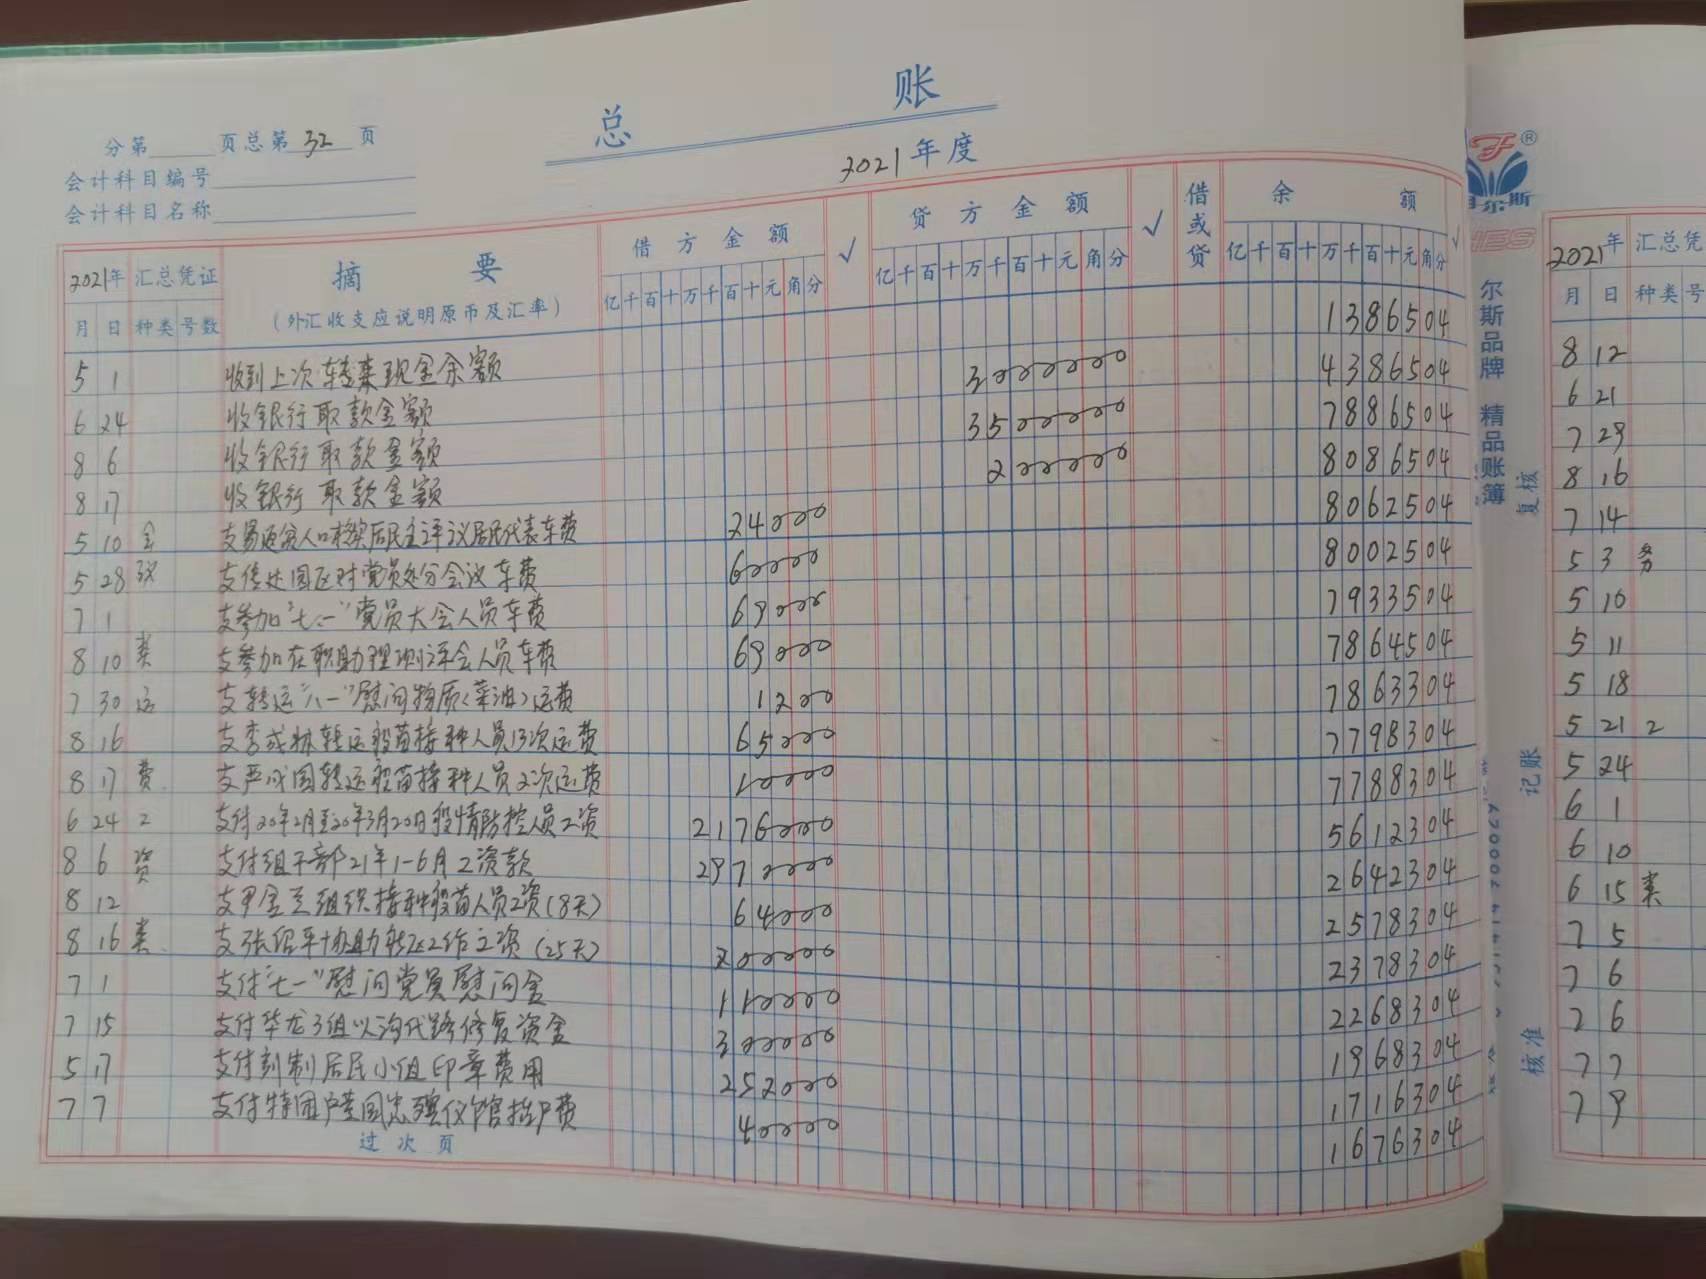 总 账
2021年度
分第 页总第 32 页
会计科目编号
会计科目名称
2021年 汇总凭证 摘 要 借方金额 √ 贷方金额 √ 借或贷 余 额 √
月 日 种类 号数 (外汇收支应说明原币及汇率) 亿千百十万千百十元角分 亿千百十万千百十元角分 亿千百十万千百十元角分
5 1 收到上次转来现金余额 1386504
6 24 收银行取款金额 3000000 4386504
8 6 收银行取款金额 3500000 7886504
8 17 收银行取款金额 200000 8086504
5 10 会 支易返贫人口 后民主评议居民代表车费 24000 8062504
5 28 议 支传达园区对党员处分会议车费 60000 8002504
7 1 支参加"七.一"党员大会人员车费 69000 7933504
8 10 类 支参加在职助理测评会人员车费 69000 7864504
7 30 运 支转运"八一"慰问物质(菜油)运费 1200 7863304
8 16 支李成林转运疫苗接种人员13次运费 65000 7798304
8 17 费 支严成国转运疫苗接种人员2次运费 10000 7788304
6 24 工 支付20年2月至20年3月20日疫情防控人员工资 2176000 5612304
8 6 资 支付组干部21年1-6月工资款 2970000 2642304
8 12 支尹金兰组织接种疫苗人员工资(8天) 64000 2578304
8 16 类 支张绍平协助社区工作工资(25天) 200000 2378304
7 1 支付"七一"慰问党员慰问金 110000 2268304
7 15 支付华龙3组以沟代路修复资金 300000 1968304
5 17 支付刻制居民小组印章费用 252000 1716304
7 7 支付特困户 国忠殡仪馆 费 40000 1676304
过次页
尔斯
尔斯品牌 精品账簿
复核
记账
核准
2021年 汇总凭
月 日 种类 号
8 12
6 21
7 29
8 16
7 14
5 3 务
5 10
5 11
5 18
5 21 工
5 24
6 1
6 10
6 15 类
7 5
7 6
7 6
7 7
7 9